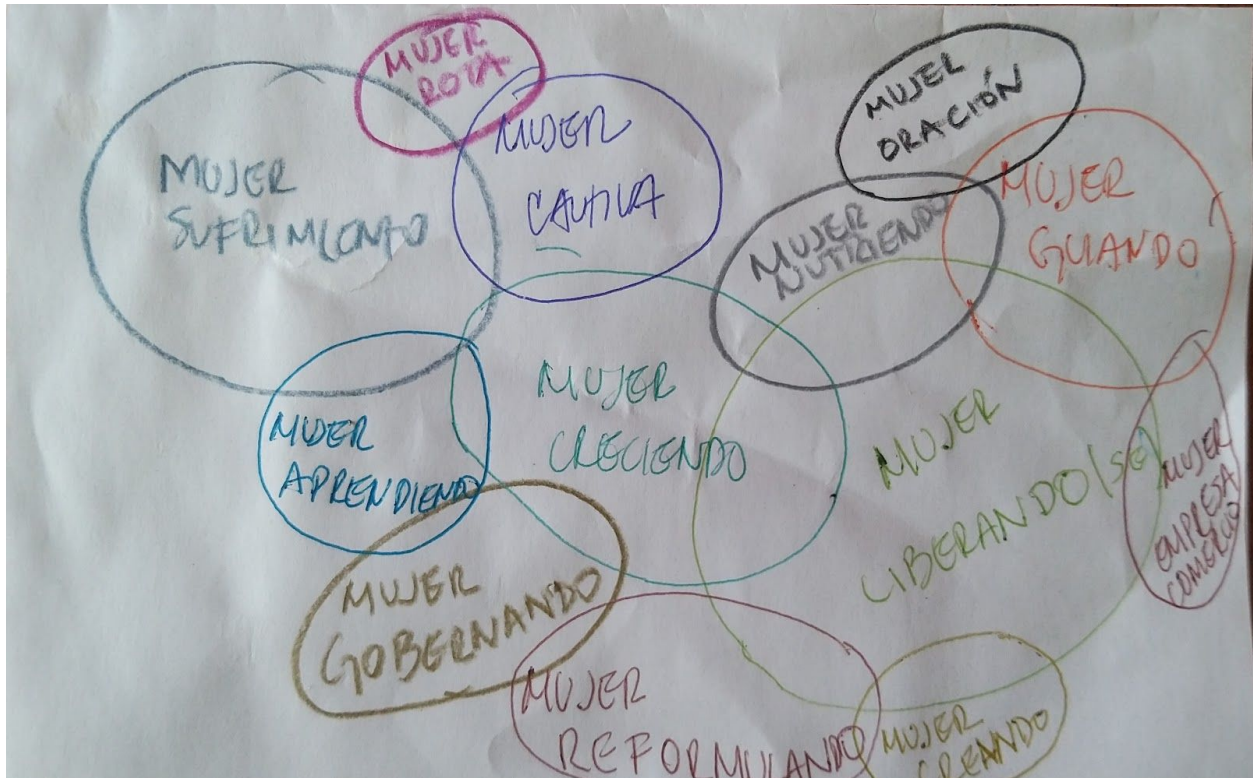 MUJER
ROTA
MUJER
SUFRIMIENTO
MUJER
CAUTIVA
MUJER
ORACIÓN
MUJER
NUTRIENDO
MUJER
GUIANDO
MUJER
APRENDIENDO
MUJER
CRECIENDO
MUJER
LIBERANDO(SE)
MUJER
EMPRESA
COMERCIO
MUJER
GOBERNANDO
MUJER
REFORMULANDO
MUJER
CREANDO